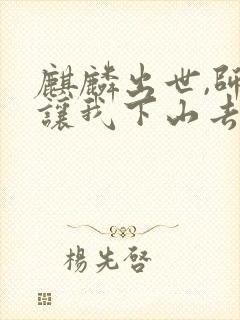 麒麟出世,師
讓我下山去
楊先啓